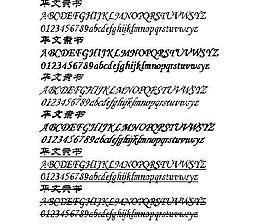 华文隶书
ABCDEFGHIJKLMNOPQRSTUVWSYZ
0123456789abcdefghijklmnopqrstuvwsyz
华文隶书
ABCDEFGHIJKLMNOPQRSTUVWSYZ
0123456789abcdefghijklmnopqrstuvwsyz
华文隶书
ABCDEFGHIJKLMNOPQRSTUVWSYZ
0123456789abcdefghijklmnopqrstuvwsyz
华文隶书
ABCDEFGHIJKLMNOPQRSTUVWSYZ
0123456789abcdefghijklmnopqrstuvwsyz
华文隶书
ABCDEFGHIJKLMNOPQRSTUVWSYZ
0123456789abcdefghijklmnopqrstuvwsyz
华文隶书
ABCDEFGHIJKLMNOPQRSTUVWSYZ
0123456789abcdefghijklmnopqrstuvwsyz